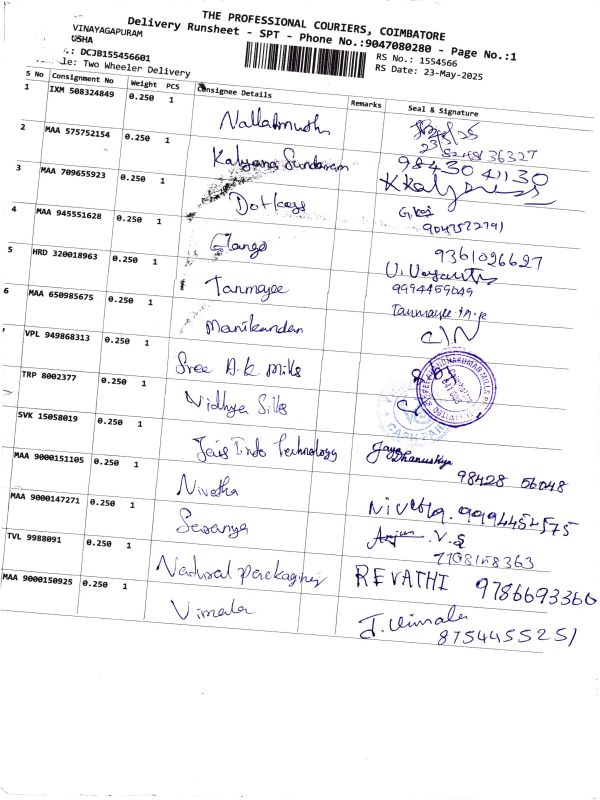 THE PROFESSIONAL COURIERS, COIMBATORE
Delivery Runsheet - SPT - Phone No.:9047080280 - Page No.:1
VINAYAGAPURAM
USHA
: DCJB155456601
RS No.: 1554566
: Two Wheeler Delivery
RS Date: 23-May-2025
S No Consignment No Weight PCS Consignee Details Remarks Seal & Signature
1 IXM 508324849 0.250 1 Nallamuthu
2 MAA 575752154 0.250 1 Kalyana Sundaram 98430 41130
3 MAA 709655923 0.250 1 Dotkays
4 MAA 945551628 0.250 1 Tango 9361026627
5 HRD 320018963 0.250 1 Tanmayee 9994459049
6 MAA 650985675 0.250 1 Manikandan
VPL 949868313 0.250 1 Sree A.K. Mills
TRP 8002377 0.250 1 Vidhya Silks
SVK 15058019 0.250 1 Jais Indo Technology Jaya Dhanushya
98428 56048
MAA 9000151105 0.250 1 Nivetha Nivetha. 9994454575
MAA 9000147271 0.250 1 Sowanya
TVL 9988091 0.250 1 Natural packaging REVATHI 9786693360
MAA 9000150925 0.250 1 Vimala J. Vimala
8754455251